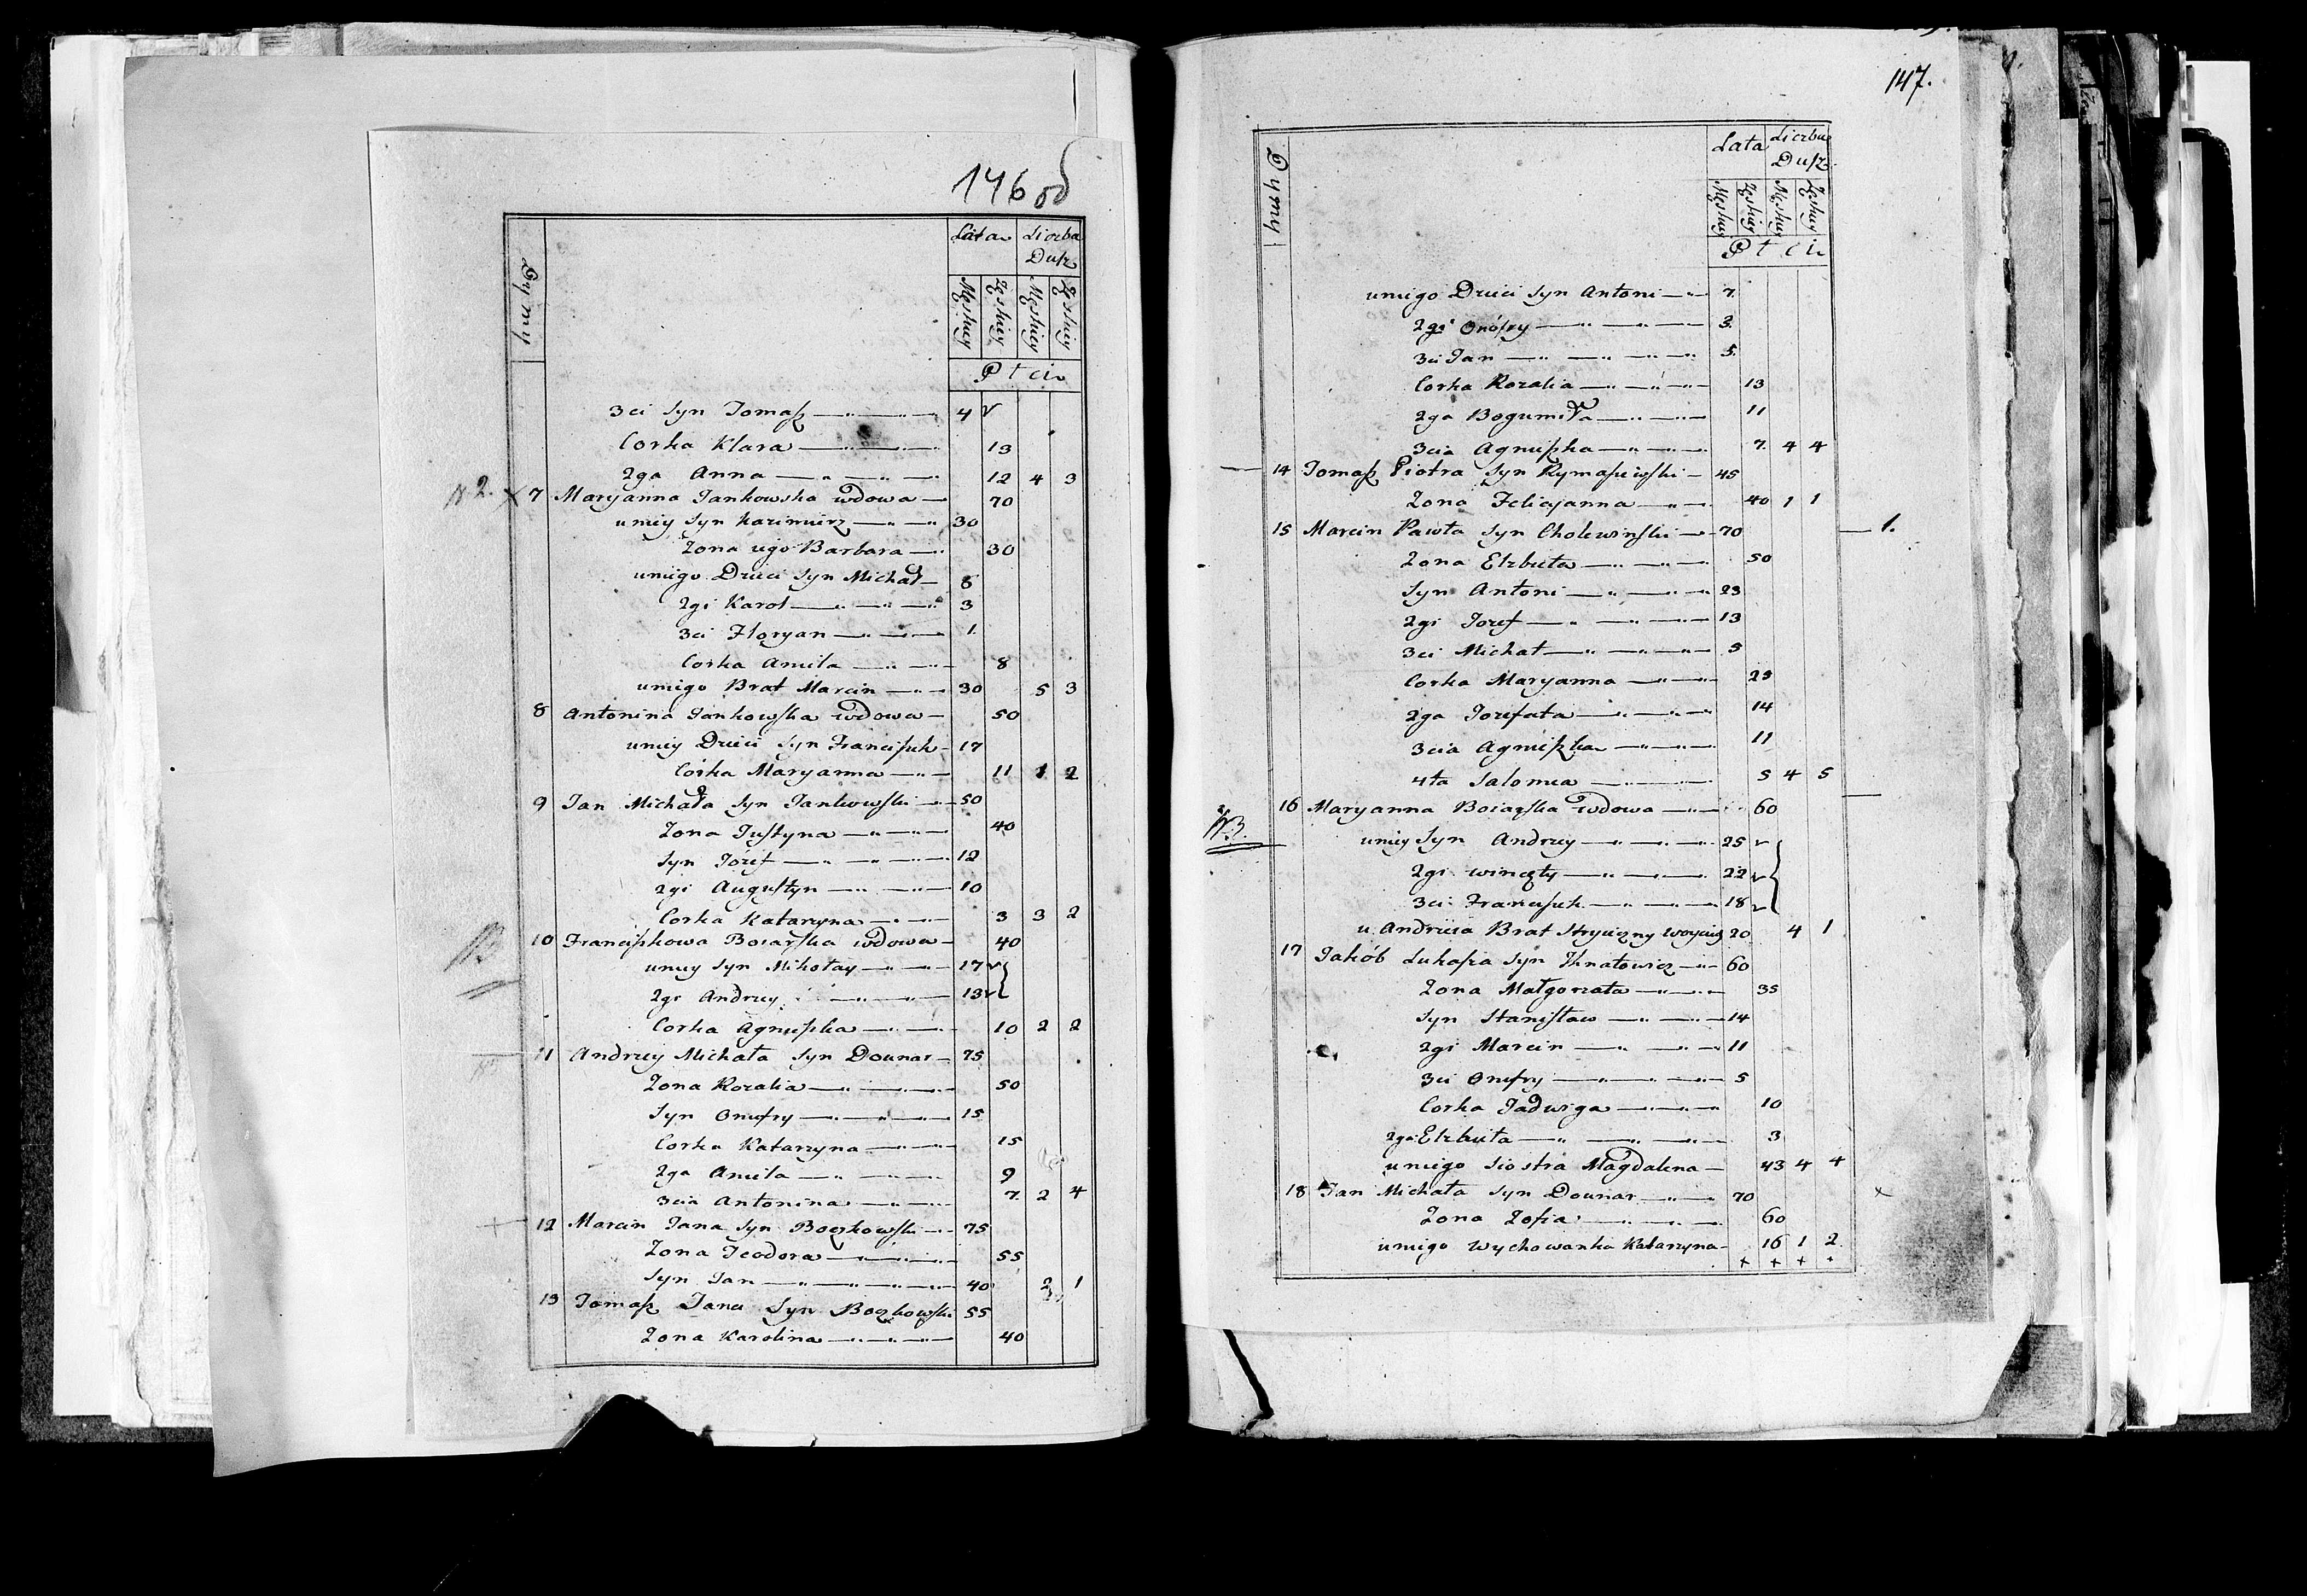 146 об
Dymy
Lata Liczba Dusz
Męskiey Żeskiey Męskiey Żeskiey
Płci
3ci Syn Tomasz 4 v
Corka Klara 13
2ga Anna 12 4 3
N 2. x 7 Maryanna Jankowska wdowa 70
u niey Syn Kazimierz 30
Zona iego Barbara 30
u niego Dzieci Syn Michał 8
2gi Karol 3
3ci Floryan 1.
Corka Aniela 8
u niego Brat Marcin 30 5 3
8 Antonina Jankowska wdowa 50
u niey Dzieci Syn Franciszek 17
Córka Maryanna 11 1 2
9 Jan Michała Syn Jankowski 50
Zona Justyna 40
Syn Józef 12
2gi Augustyn 10
Corka Katarzyna 3 3 2
10 Franciszkowa Boiarska wdowa 40
u niey Syn Mikołay 17 v
2gi Andrzey 13 v
Corka Agnieszka 10 2 2
11 Andrzey Michała Syn Dounar 75
Zona Rozalia 50
Syn Onufry 15
Corka Katarzyna 15
2ga Aniela 9
3cia Antonina 7. 2 4
12 Marcin Jana Syn Boczkowski 75
Zona Teodora 55
Syn Jan 40 2 1
13 Tomasz Jana Syn Boczkowski 55
Zona Karolina 40
147.
Dymy
Lata Liczba Dusz
Męskiey Żeskiey Męskiey Żeskiey
Płci
u niego Dzieci Syn Antoni 7.
2gi Onófry 3.
3ci Jan 5.
Corka Rozalia 13
2ga Bogumiła 11
3cia Agnieszka 7. 4 4
14 Tomasz Piotra Syn Rymaszewski 45
Zona Felicyanna 40 1 1
15 Marcin Pawła Syn Cholewinski 70 1.
Zona Elzbieta 50
Syn Antoni 23
2gi Jozef 13
3ci Michał 5
Corka Maryanna 23
2ga Jozefata 14
3cia Agnieszka 11
4ta Salomea 5 4 5
16 Maryanna Boiarska wdowa 60
NB. u niey Syn Andrzey 25 v
2gi Wincęty 22 v
3ci Franciszek 18 v
u Andrzeia Brat Stryieczny Woyciech 20 4 1
17 Jakób Lukasza Syn Ihnatowicz 60
Zona Małgorzata 35
Syn Stanisław 14
2gi Marcin 11
3ci Onufry 5
Corka Jadwiga 10
2ga Elzbieta 3
u niego Siostra Magdalena 43 4 4
18 Jan Michała Syn Dounar 70 x
Zona Zofia 60
u niego Wychowanka Katarzyna 16 1 2
+ + + +